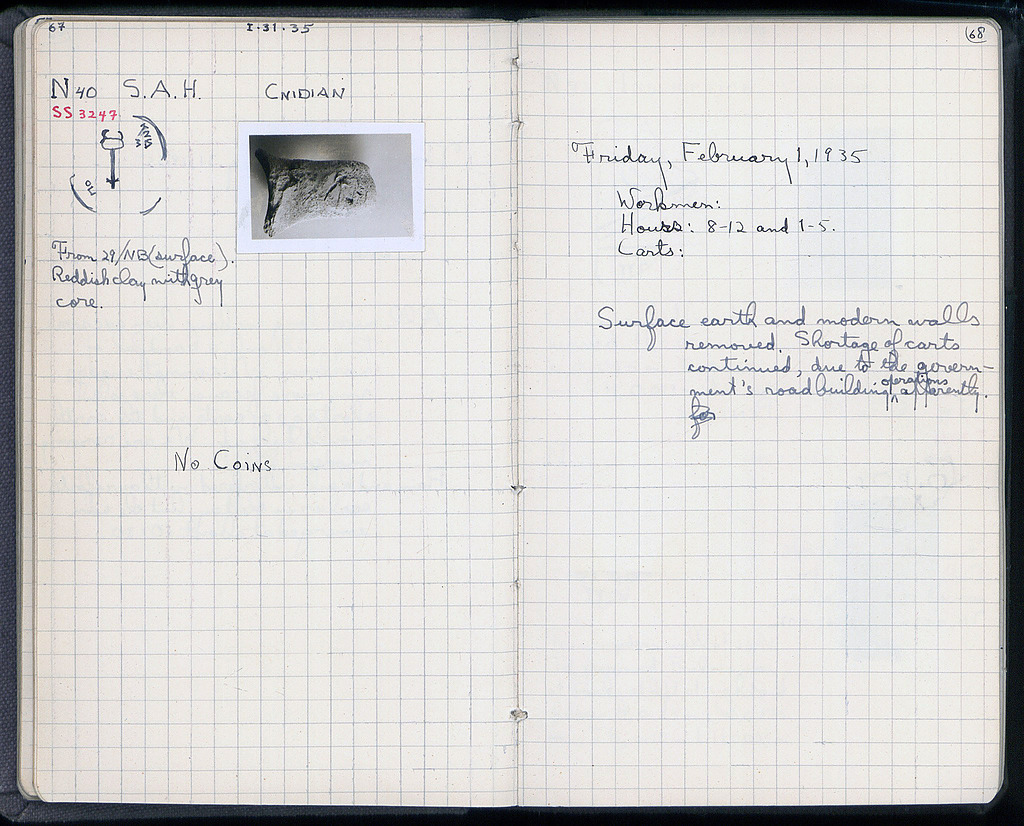 67
I·31·35
N 40 S.A.H. CNIDIAN
SS 3247
From 29/NB (surface).
Reddish clay with grey
core.
No Coins
68
Friday, February 1, 1935
Workmen:
Hours: 8-12 and 1-5.
Carts:
Surface earth and modern walls
removed. Shortage of carts
continued, due to the govern-
ment's road building operations apparently.